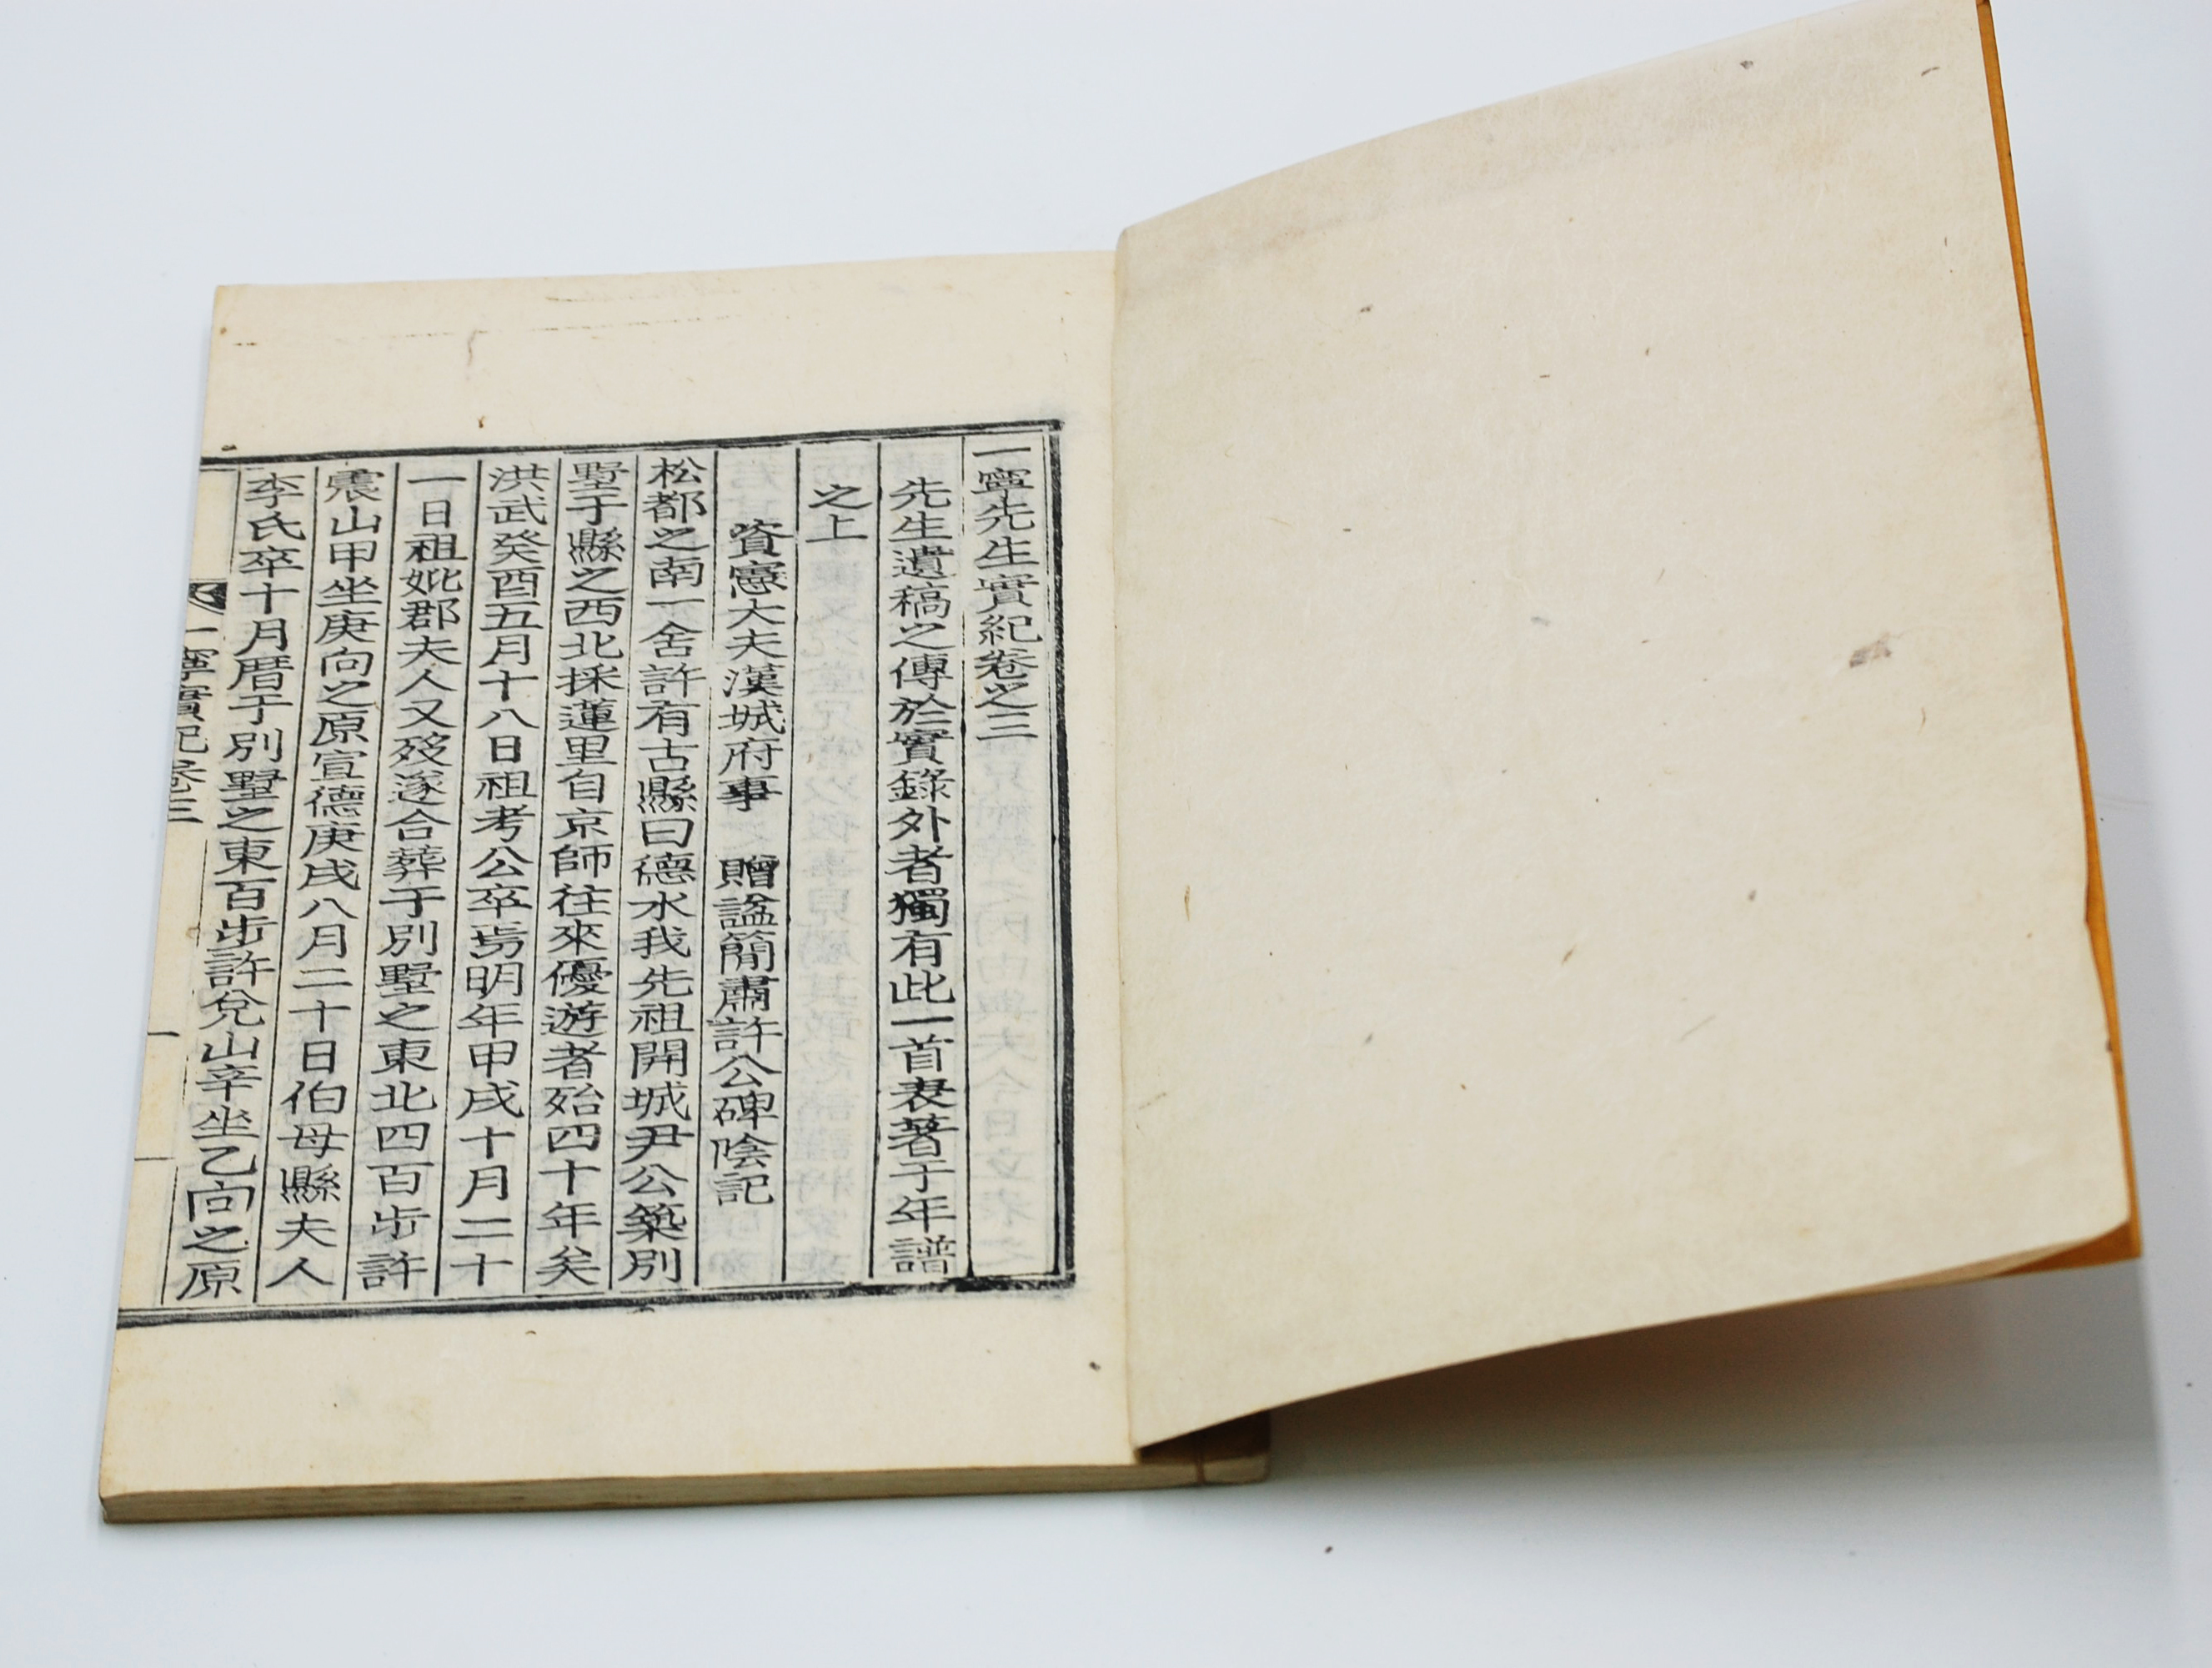 一寧先生實紀卷之三
先生遺稿之傳於實錄外者獨有此一首表著于年譜
之上
資憲大夫漢城府事 贈謚簡肅許公碑陰記
松都之南一舍許有古縣曰德水我先祖開城尹公築別
墅于縣之西北採蓮里自京師往來優遊者殆四十年矣
洪武癸酉五月十八日祖考公卒歲明年甲戌十月二十
一日祖妣郡夫人又歿遂合葬于別墅之東北四百步許
震山甲坐庚向之原宣德庚戌八月二十日伯母縣夫人
李氏卒十月厝于別墅之東百步許兌山辛坐乙向之原
一寧實紀卷三
一